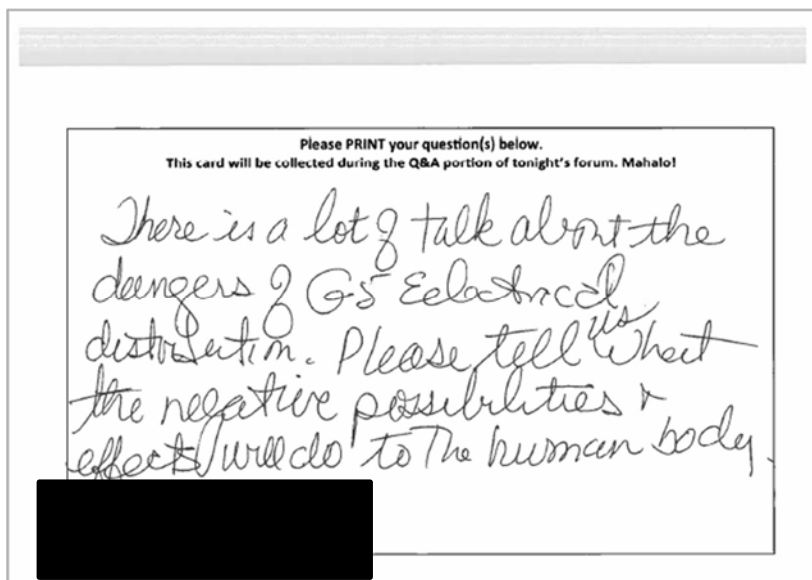 Please PRINT your question(s) below.
This card will be collected during the Q&A portion of tonight's forum. Mahalo!
There is a lot of talk about the
dangers of G5 Eclectrical
distribution. Please tell us what
the negative possibilities &
effects will do to the human body.